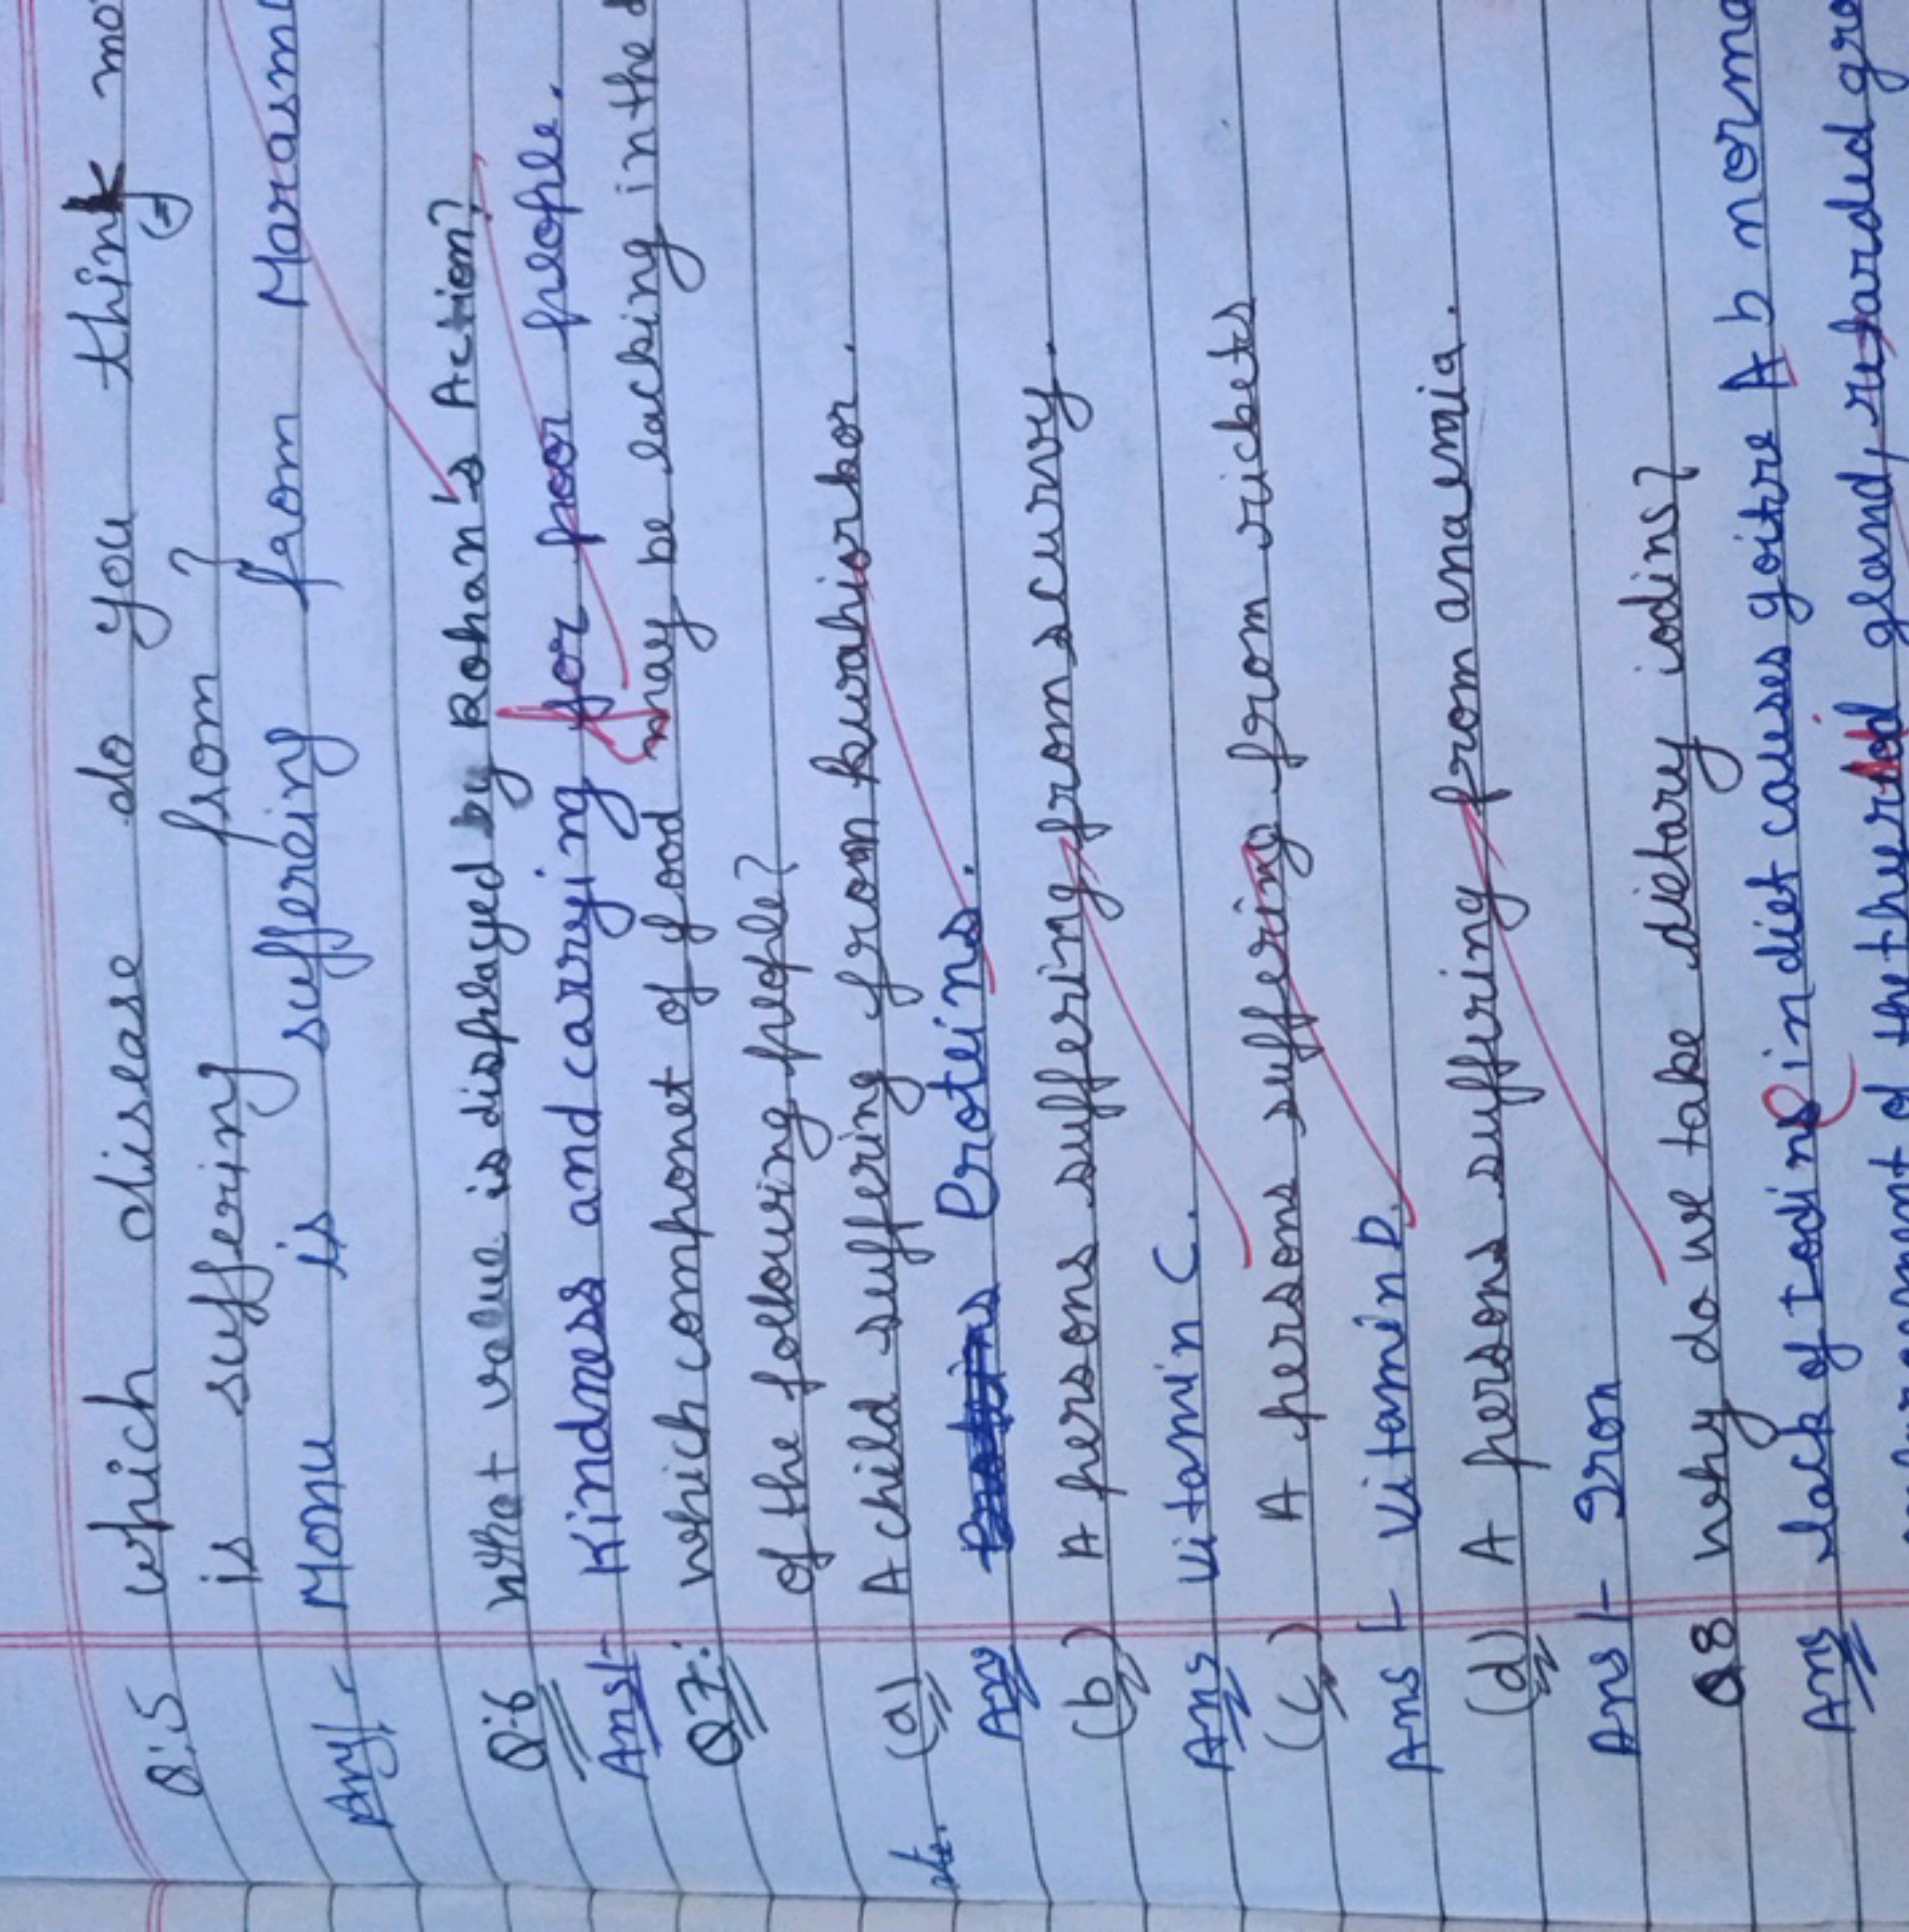 Q.5 which disease do you think mo
is suffering from?
Ans/- Monu is suffereing from Marasm
Q.6 what value is displayed by Rohan's Action?
Ans/- Kindness and carrying for poor people.
Q7: which componet of food may be lacking in the d
of the following people?
(a) A child suffering from kwahiorkor.
Ans Proteins.
(b) A persons suffering from scurvy.
Ans Vitamin C.
(c) A persons suffering from rickets
Ans /- Vitamin D.
(d) A persons suffering from anaemia.
Ans /- Iron
Q8 why do we take dietary iodins?
Ans lack of Iodine in diet causes goitre A b norma
of the thyertod gland, retarded gro